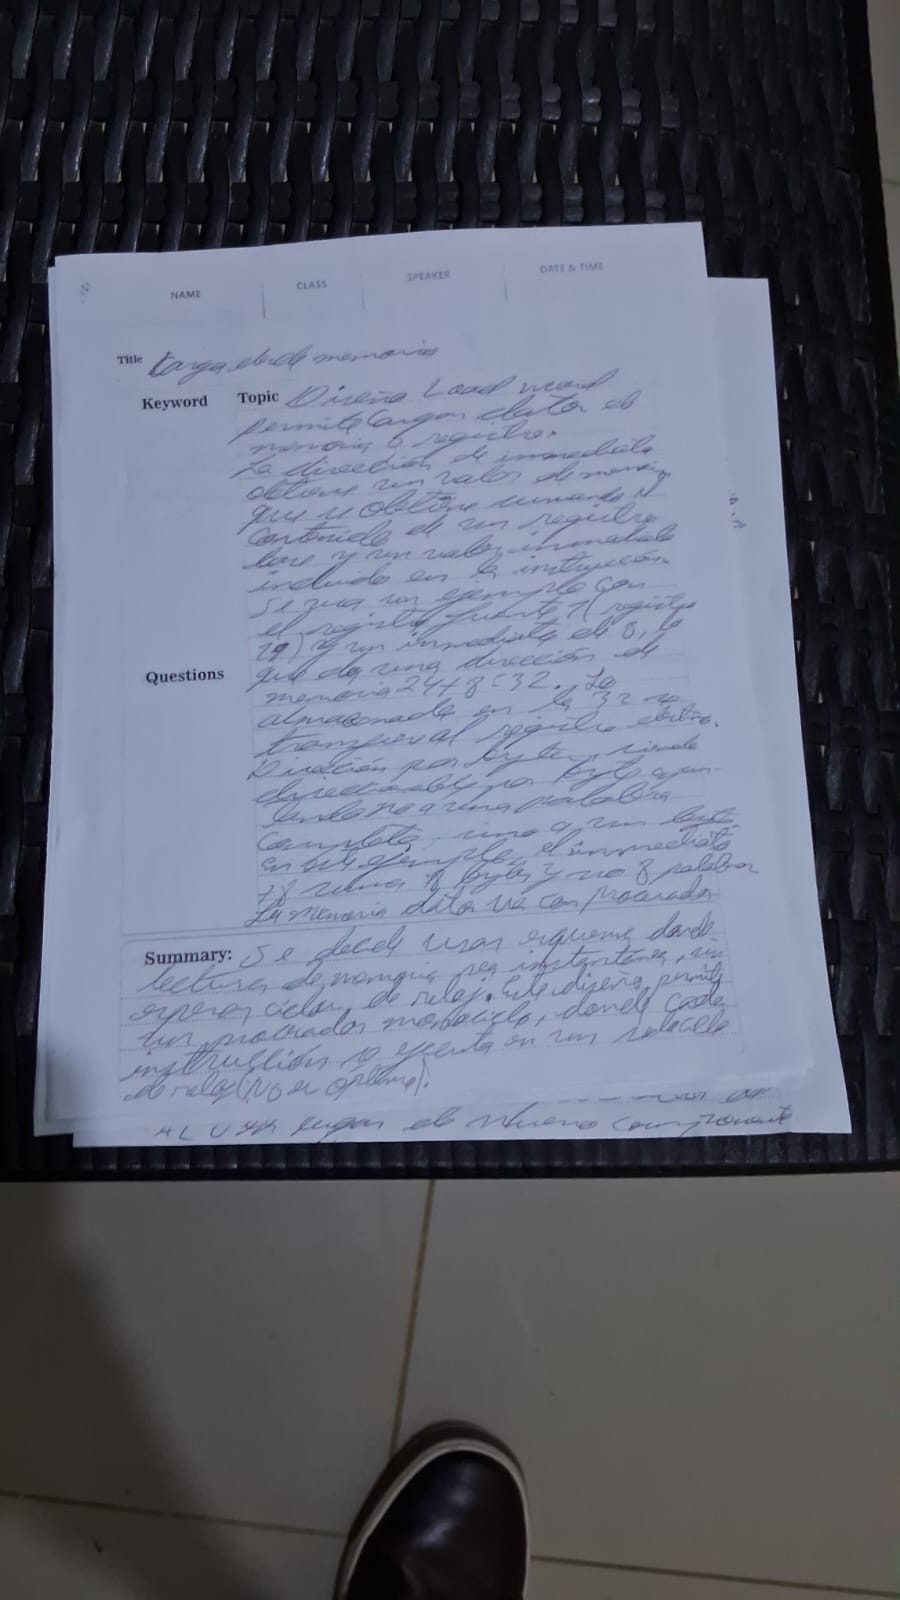 NAME CLASS SPEAKER DATE & TIME
Title Carga desde memoria
Keyword Topic Diseño Load word
permite cargar datos de
memoria a registro.
La dirección de immediata
obtiene un valor de memoria
que se obtiene sumando el
contenido de un registro
base y un valor inmediato
incluido en la instrucción.
Se usa un ejemplo con
el registro fuente 1 (registro
19) y un inmediato de 8, lo
Questions que da una dirección de
memoria 24+8=32. Lo
almacenado en la 32 se
transfiere al registro destino.
Dirección por byte, siendo
direccionable por byte apun
tando no a una palabra
completa, sino a un byte
en este ejemplo, el immediato
+8 suma 8 bytes y no 8 palabras
La memoria datos va con procesador
Summary: Se decide usar esquema donde
lectura de memoria sea instantánea, sin
esperar ciclos de reloj. Este diseño permite
un procesador monociclo, donde cada
instrucción se ejecuta en un solo ciclo
de reloj (No es óptimo).
ALU en lugar de nuevo componente